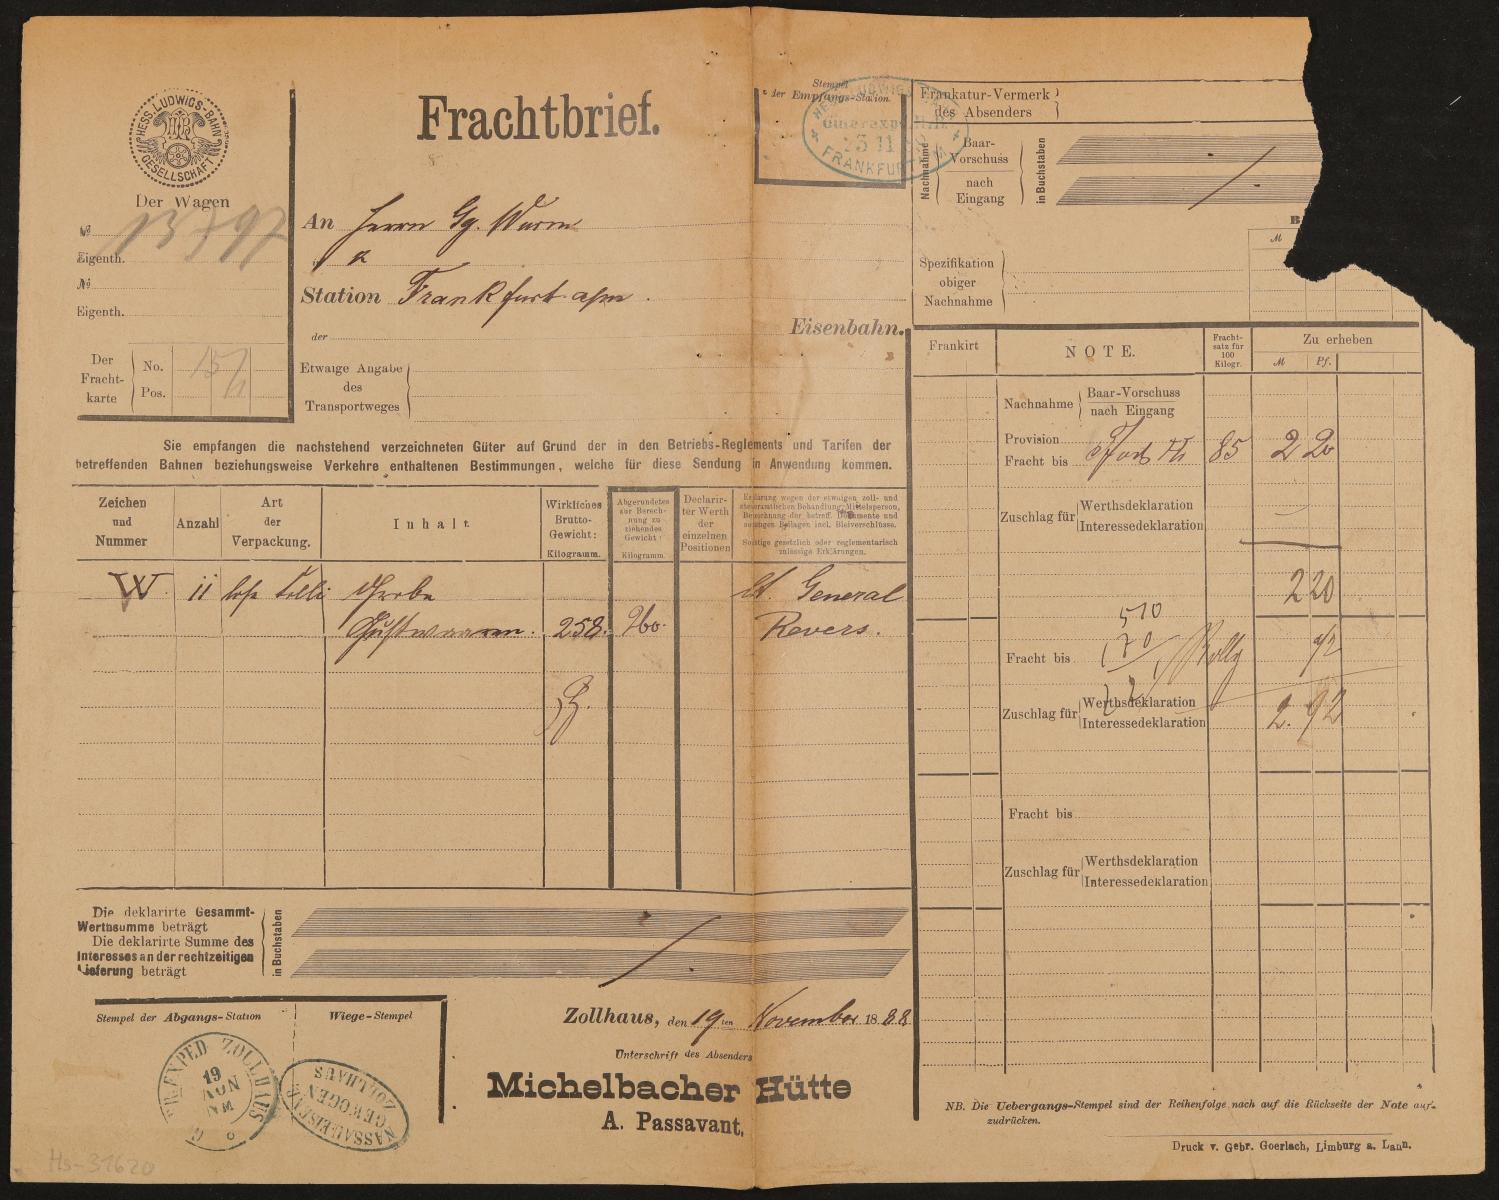 Frachtbrief.
HESS. LUDWIGS-BAHN
GESELLSCHAFT
Der Wagen
№ 13797
Eigenth.
№
Eigenth.
Der Fracht-karte
No. 15/11
Pos.
An Herrn Gg. Wurm
Station Frankfurt a/m.
der
Eisenbahn.
Etwaige Angabe
des
Transportweges
Stempel
der Empfangs-Station.
FRANKFURT
Frankatur-Vermerk
des Absenders
Nachnahme
Baar-
Vorschuss
nach
Eingang
in Buchstaben
M
Spezifikation
obiger
Nachnahme
Sie empfangen die nachstehend verzeichneten Güter auf Grund der in den Betriebs-Reglements und Tarifen der
betreffenden Bahnen beziehungsweise Verkehre enthaltenen Bestimmungen, welche für diese Sendung in Anwendung kommen.
Zeichen
und
Nummer
Anzahl
Art
der
Verpackung.
Inhalt
Wirkliches
Brutto-
Gewicht:
Kilogramm.
Abgerundetes
zur Berech-
nung zu
ziehendes
Gewicht:
Kilogramm.
Declarir-
ter Werth
der
einzelnen
Positionen
Erklärung wegen der etwaigen zoll- und
steueramtlichen Behandlung, Mittelsperson,
Bezeichnung der betreff. Dokumente und
sonstigen Beilagen incl. Bleiverschlüsse.
Sonstige gesetzlich oder reglementarisch
zulässige Erklärungen.
W 11 lose Colli Grobe
Gußwaaren. 258. 260.
lt. General
Revers.
Frankirt
NOTE.
Fracht-
satz für
100
Kilogr.
Zu erheben
M Pf.
Nachnahme
Baar-Vorschuss
nach Eingang
Provision
Fracht bis
85 2 20
Zuschlag für
Werthsdeklaration
Interessedeklaration
2 20
510
170
Fracht bis
72
Zuschlag für
Werthsdeklaration
Interessedeklaration
2. 92
Fracht bis
Zuschlag für
Werthsdeklaration
Interessedeklaration
Die deklarirte Gesammt-
Werthsumme beträgt
Die deklarirte Summe des
Interesses an der rechtzeitigen
Lieferung beträgt
in Buchstaben
Zollhaus, den 19ten November 1888
Unterschrift des Absenders
Michelbacher Hütte
A. Passavant,
Stempel der Abgangs-Station
Wiege-Stempel
ZOLLHAUS
19
NOV
NM
NASSAU EISENB
GEWOGEN
ZOLLHAUS
NB. Die Uebergangs-Stempel sind der Reihenfolge nach auf die Rückseite der Note auf-
zudrücken.
Druck v. Gebr. Goerlach, Limburg a. Lahn.
Hs-31620